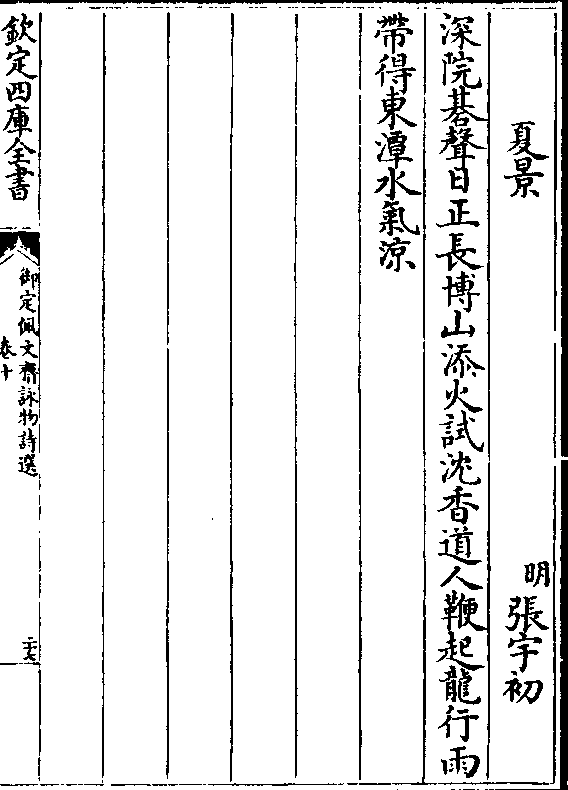 夏景
明張宇初
深院碁聲日正長博山添火試沈香道人鞭起龍行雨
帶得東潭水氣涼
欽定四庫全書
御定佩文齋詠物詩選
卷十
二十六